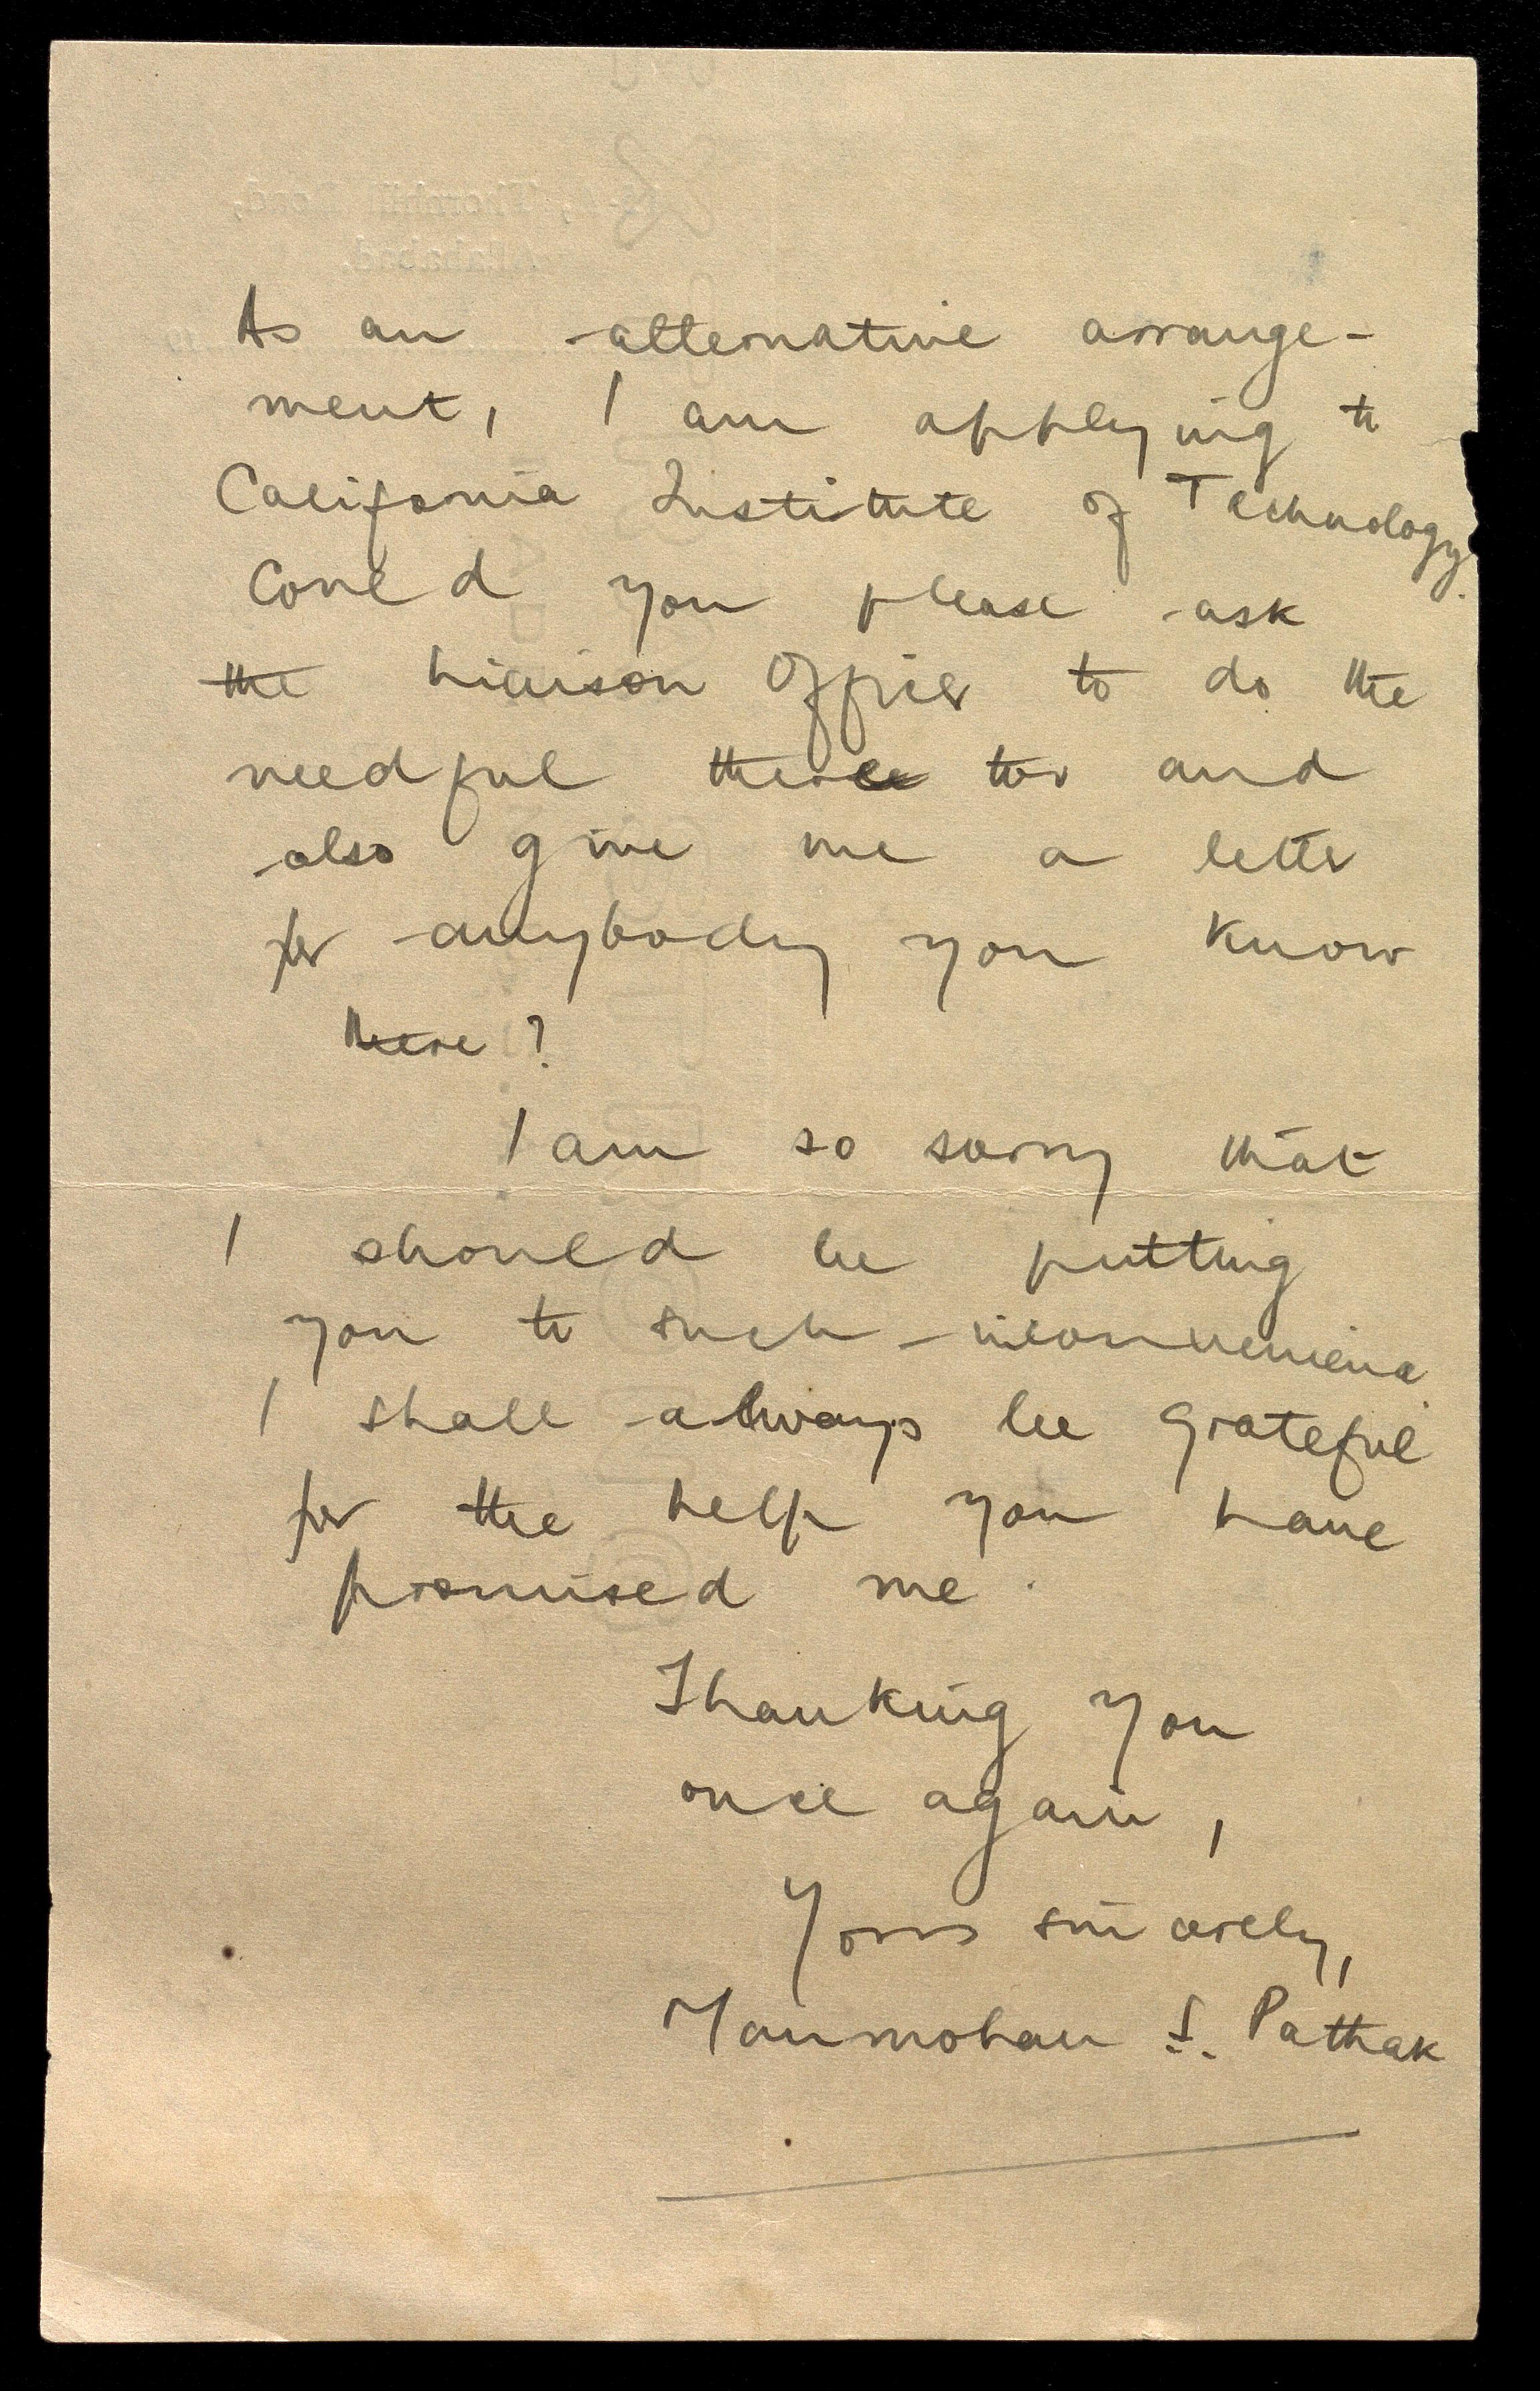 As an alternative arrange-
ment, I am applying to
California Institute of Technology.
Could you please ask
the Liaison Officer to do the
needful there too and
also give me a letter
for anybody you know
there?
I am so sorry that
I should be putting
you to such inconvenience.
I shall always be grateful
for the help you have
promised me.
Thanking you
once again,
Yours sincerely,
Manmohan S. Pathak